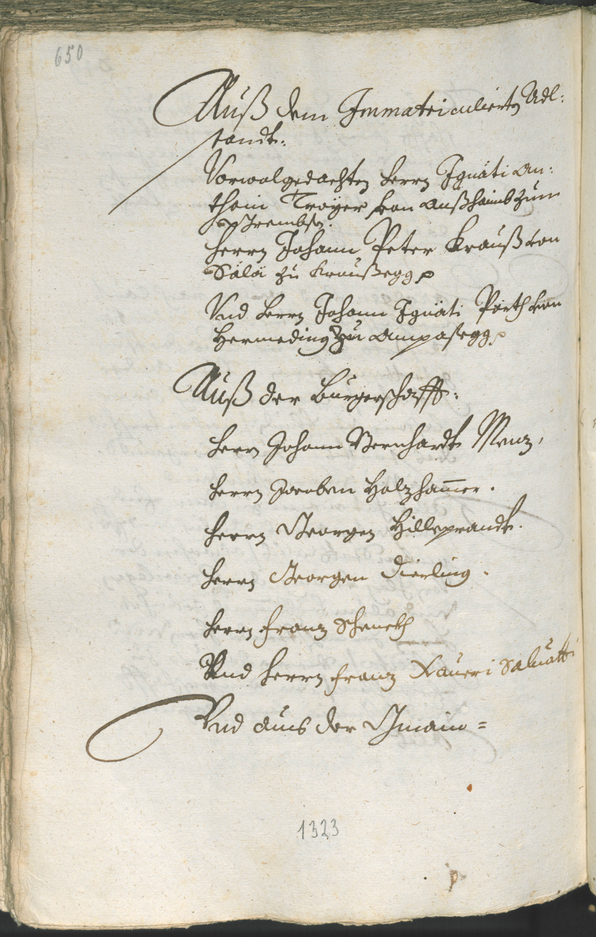 650
Auß dem Immatriculierten Adl-
standt.
Vorwolgedachten Herrn Ignäti An-
thoni Troyer von Außhaimb zum
Herrn Johann Peter Krauß von
Sälä zu Kraußegg
Und Herrn Johann Ignäti Pörth von
Hermeding zu Ampaßegg
Auß der Burgerschafft.
Herrn Johann Bernhardt Menz,
Herrn Holzham̄er.
Herrn Georgen Hilleprandt.
Herrn Georgen Dierling.
Herrn Franz Schenckh
Und Herrn Franz Xaueri Saluatti
Und aus der Gmain=
1323